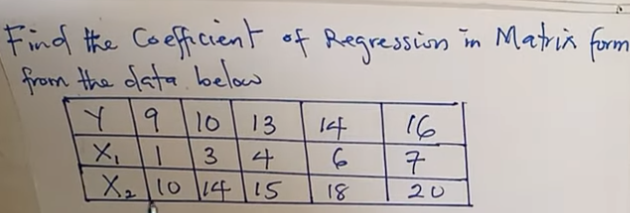 Find the Coefficient of Regression in Matrix form
from the data below
Y 9 10 13 14 16
X₁ 1 3 4 6 7
X₂ 10 14 15 18 20